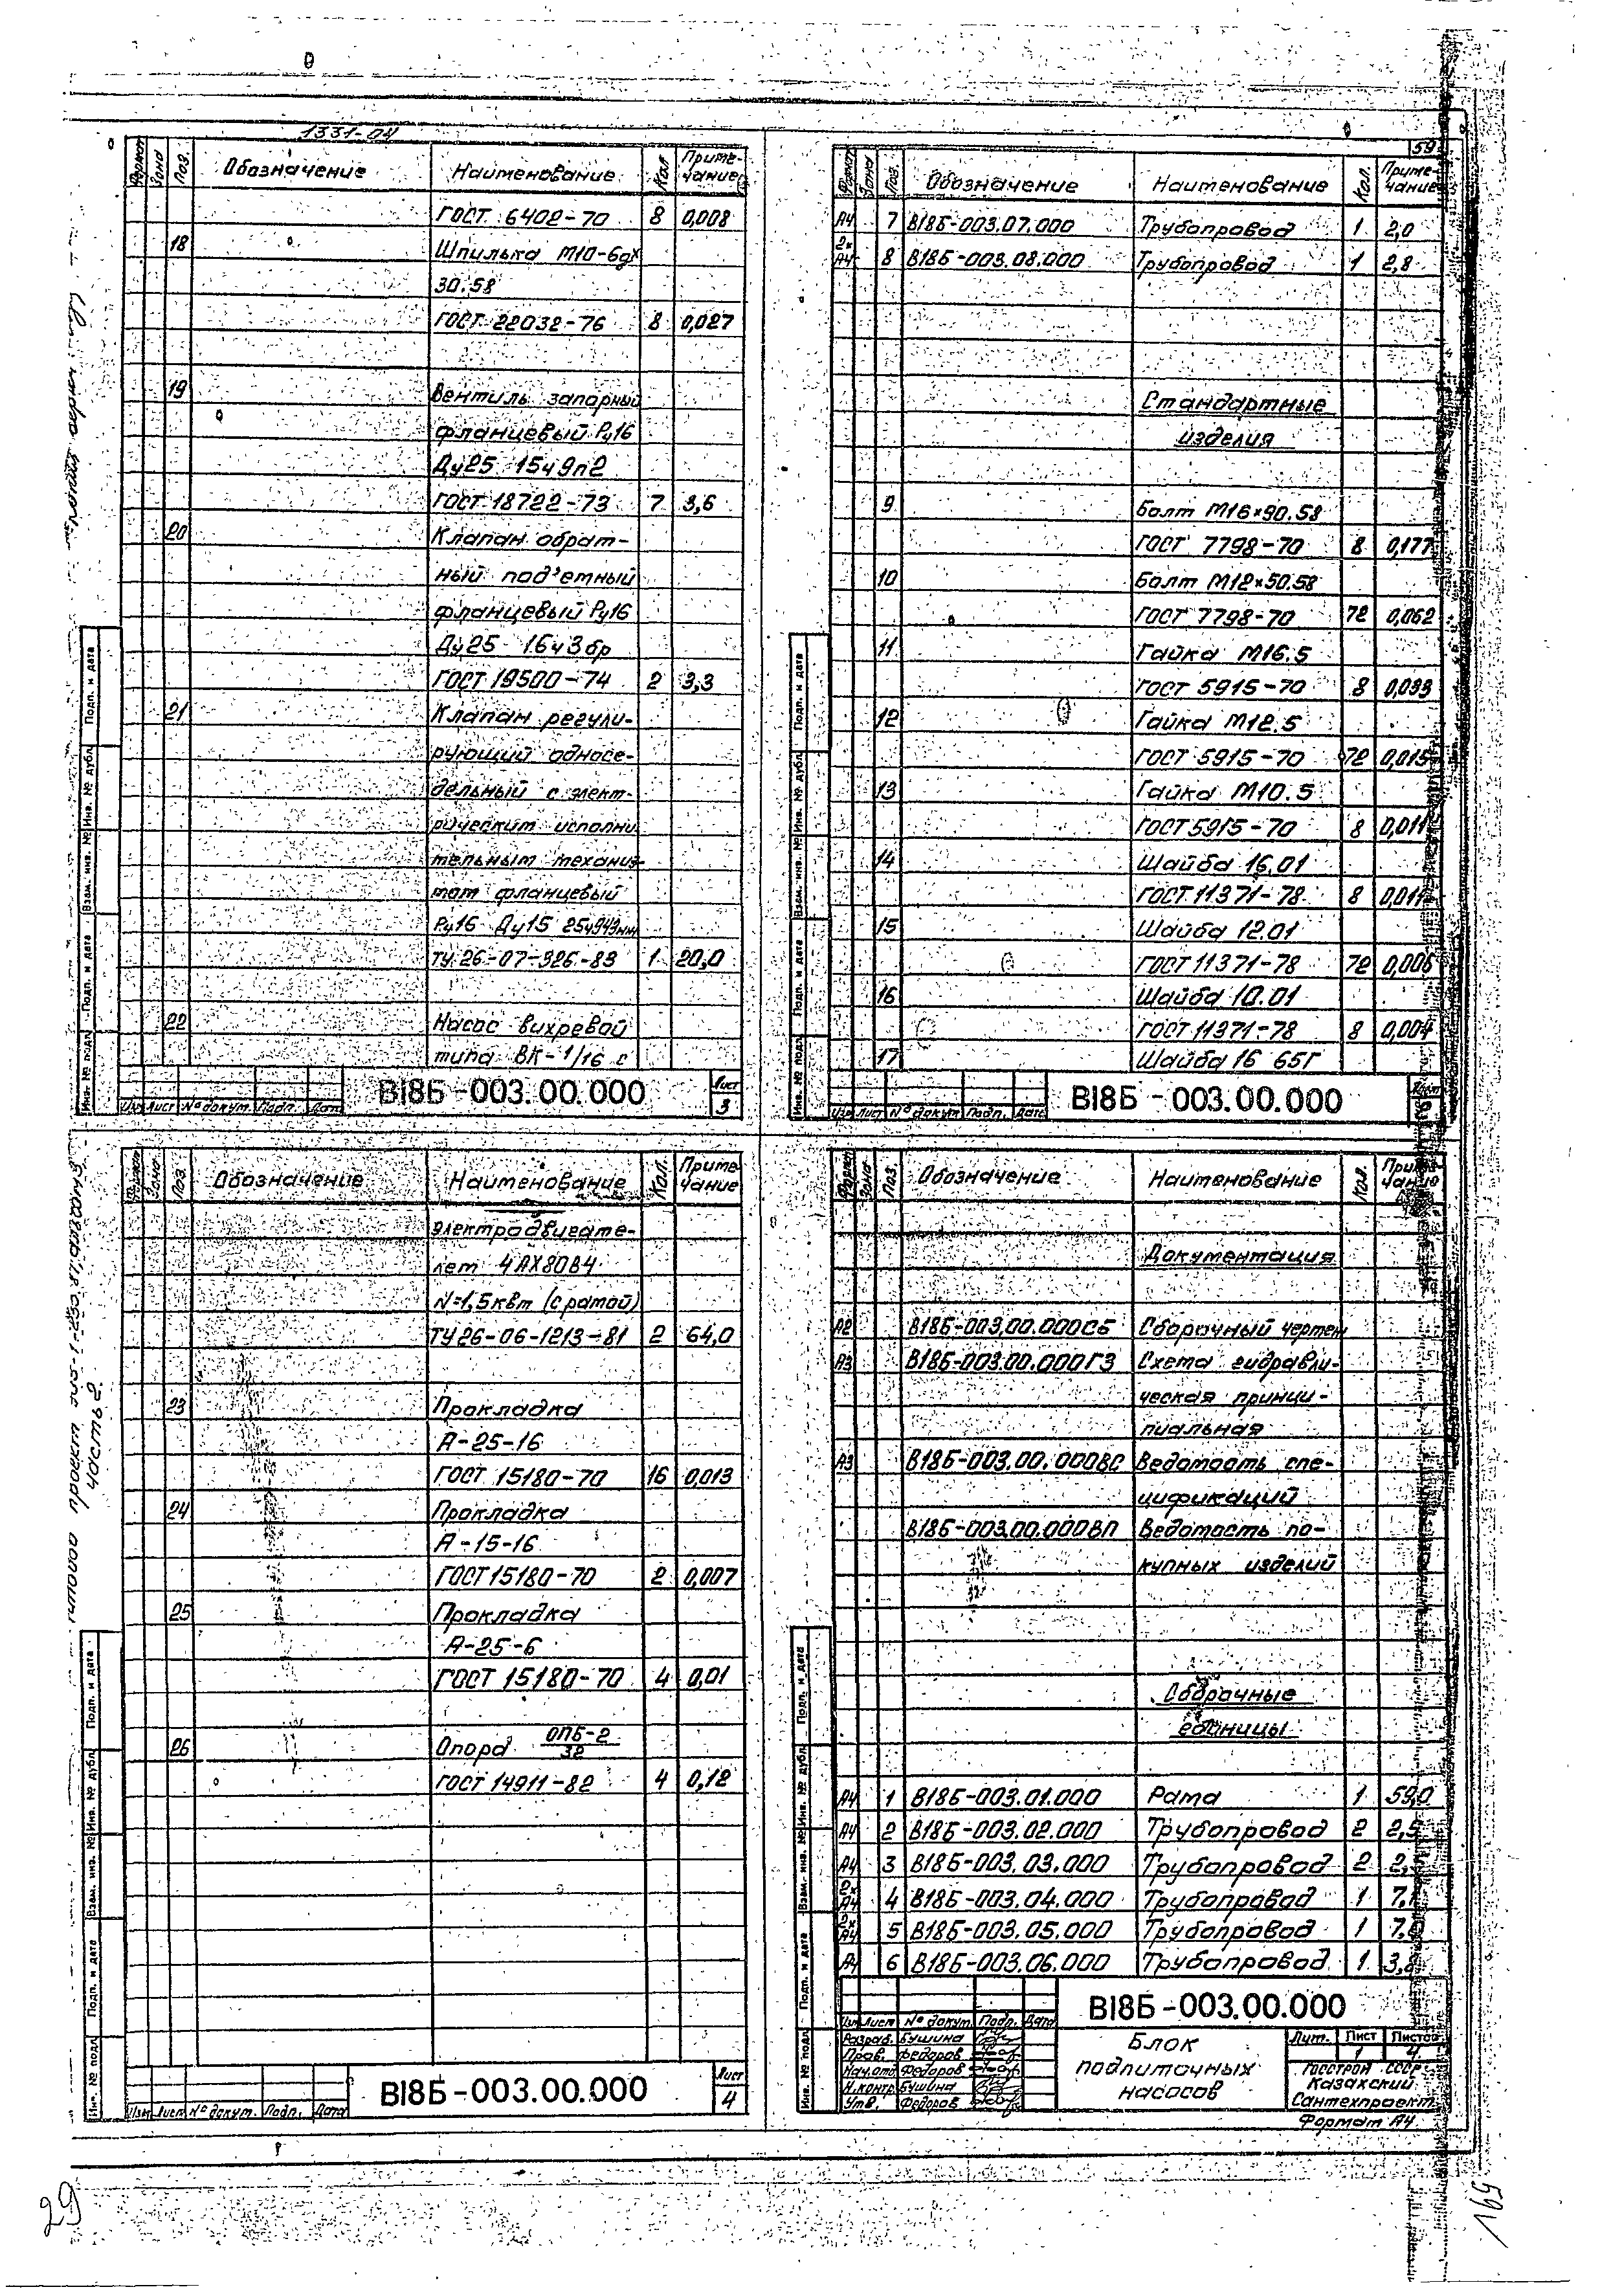 1331-04
Формат Зона Поз. Обозначение Наименование Кол. Приме-
чание
ГОСТ 6402-70 8 0,008
18 Шпилька М10-6gх
30.58
ГОСТ 22032-76 8 0,027
19 Вентиль запорный
фланцевый Ру16
Ду25 15ч9п2
ГОСТ 18722-73 7 3,6
20 Клапан обрат-
ный под'емный
фланцевый Ру16
Ду25 16ч3бр
ГОСТ 19500-74 2 3,3
21 Клапан регули-
рующий односе-
дельный с элект-
рическим исполни
тельным механиз-
мом фланцевый
Ру16 Ду15 25ч943нж
ТУ 26-07-326-83 1 20,0
22 Насос вихревой
типа ВК-1/16 с
В18Б-003.00.000
Лист
3
Изм. Лист № докум. Подп. Дата
Инв. № подл. Подп. и дата Взам. инв. № Инв. № дубл. Подп. и дата
59
Формат Зона Поз. Обозначение Наименование Кол. Приме-
чание
А4 7 В18Б-003.07.000 Трубопровод 1 2,0
2х
А4 8 В18Б-003.08.000 Трубопровод 1 2,8
Стандартные
изделия
9 Болт М16х90.58
ГОСТ 7798-70 8 0,177
10 Болт М12х50.58
ГОСТ 7798-70 72 0,062
11 Гайка М16.5
ГОСТ 5915-70 8 0,033
12 Гайка М12.5
ГОСТ 5915-70 72 0,015
13 Гайка М10.5
ГОСТ 5915-70 8 0,011
14 Шайба 16.01
ГОСТ 11371-78 8 0,011
15 Шайба 12.01
ГОСТ 11371-78 72 0,006
16 Шайба 10.01
ГОСТ 11371-78 8 0,004
17 Шайба 16 65Г
В18Б-003.00.000
Изм Лист № докум Подп. Дата
Инв. № подл. Подп. и дата Взам. инв. № Инв. № дубл. Подп. и дата
Формат Зона Поз. Обозначение Наименование Кол. Приме-
чание
электродвигате-
лем 4АХ80В4
N=1,5квт (с рамой)
ТУ 26-06-1213-81 2 64,0
23 Прокладка
А-25-16
ГОСТ 15180-70 16 0,013
24 Прокладка
А-15-16
ГОСТ 15180-70 2 0,007
25 Прокладка
А-25-6
ГОСТ 15180-70 4 0,01
26 Опора ОПБ-2
32
ГОСТ 14911-82 4 0,12
В18Б-003.00.000
Лист
4
Изм. Лист № докум. Подп. Дата
Инв. № подл. Подп. и дата Взам. инв. № Инв. № дубл. Подп. и дата
Формат Зона Поз. Обозначение Наименование Кол. Приме-
чание
Документация
А2 В18Б-003.00.000СБ Сборочный чертеж
А3 В18Б-003.00.000Г3 Схема гидравли-
ческая принци-
пиальная
А3 В18Б-003.00.000ВС Ведомость спе-
цификаций
В18Б-003.00.000ВП Ведомость по-
купных изделий
Сборочные
единицы
А4 1 В18Б-003.01.000 Рама 1 59,0
А4 2 В18Б-003.02.000 Трубопровод 2 2,5
А4 3 В18Б-003.03.000 Трубопровод 2
2х
А4 4 В18Б-003.04.000 Трубопровод 1
2х
А4 5 В18Б-003.05.000 Трубопровод 1
А4 6 В18Б-003.06.000 Трубопровод 1
В18Б-003.00.000
Изм Лист № докум. Подп. Дата
Разраб. Бушина
Пров. Федоров
Нач.отд. Федоров
Н.контр. Бушина
Утв. Федоров
Блок
подпиточных
насосов
Лит. Лист Листов
1 4
Госстрой СССР
Казахский
Сантехпроект
Формат А4
Инв. № подл. Подп. и дата Взам. инв. № Инв. № дубл. Подп. и дата
часть 2
29
169